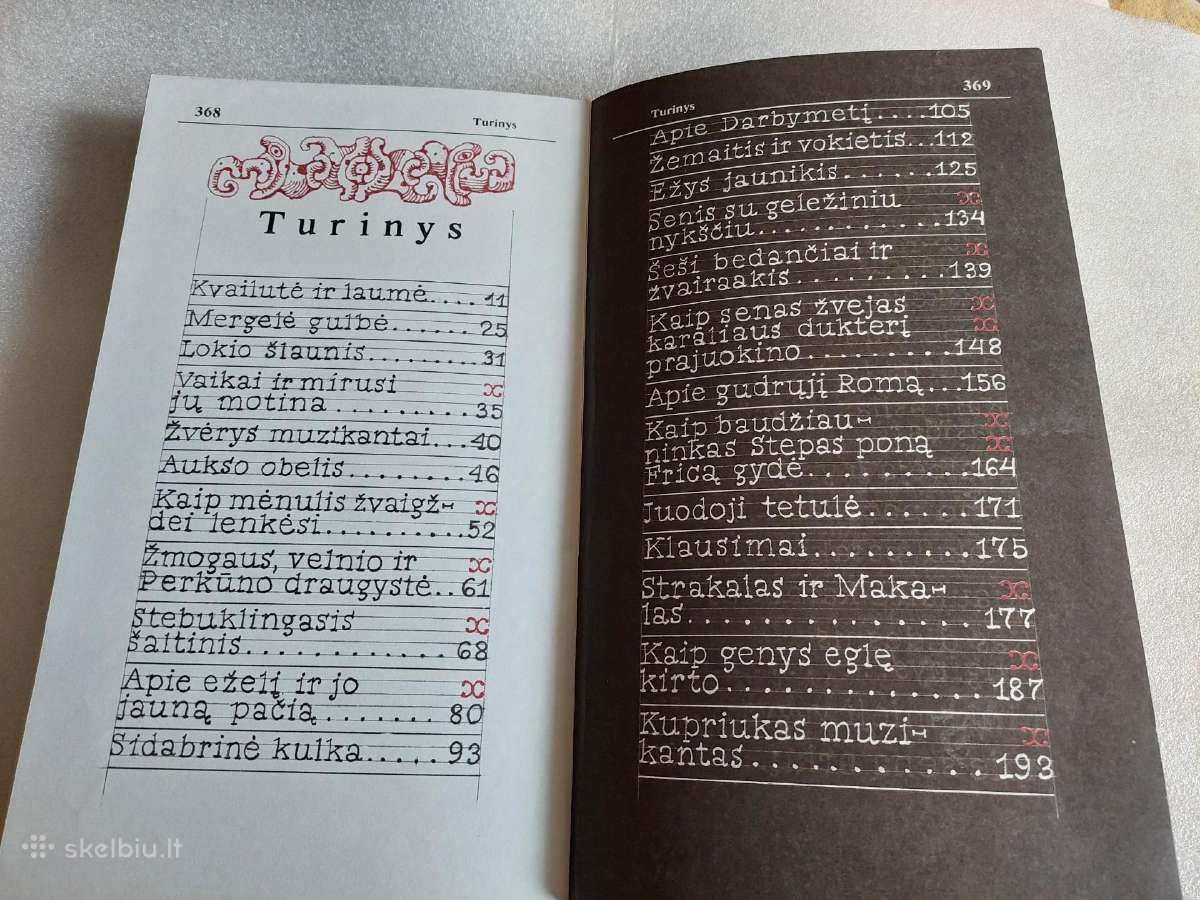 368
Turinys
Turinys
Kvailutė ir laumė.... 11
Mergelė gulbė...... 25
Lokio šlaunis....... 31
Vaikai ir mirusi
jų motina ......... 35
Žvėrys muzikantai... 40
Aukso obelis....... 46
Kaip mėnulis žvaigž-
dei lenkėsi........ 52
Žmogaus, velnio ir
Perkūno draugystė.. 61
Stebuklingasis
šaltinis........... 68
Apie eželį ir jo
jauną pačią....... 80
Sidabrinė kulka..... 93
Turinys
369
Apie Darbymetį.... 105
Žemaitis ir vokietis... 112
Ežys jaunikis...... 125
Senis su geležiniu
nykščiu........... 134
Šeši bedančiai ir
žvairaakis......... 139
Kaip senas žvejas
karaliaus dukterį
prajuokino........ 148
Apie gudrųjį Romą... 156
Kaip baudžiau-
ninkas Stepas poną
Fricą gydė......... 164
Juodoji tetulė...... 171
Klausimai......... 175
Strakalas ir Maka-
las............... 177
Kaip genys eglę
kirto............. 187
Kupriukas muzi-
kantas........... 193
skelbiu.lt